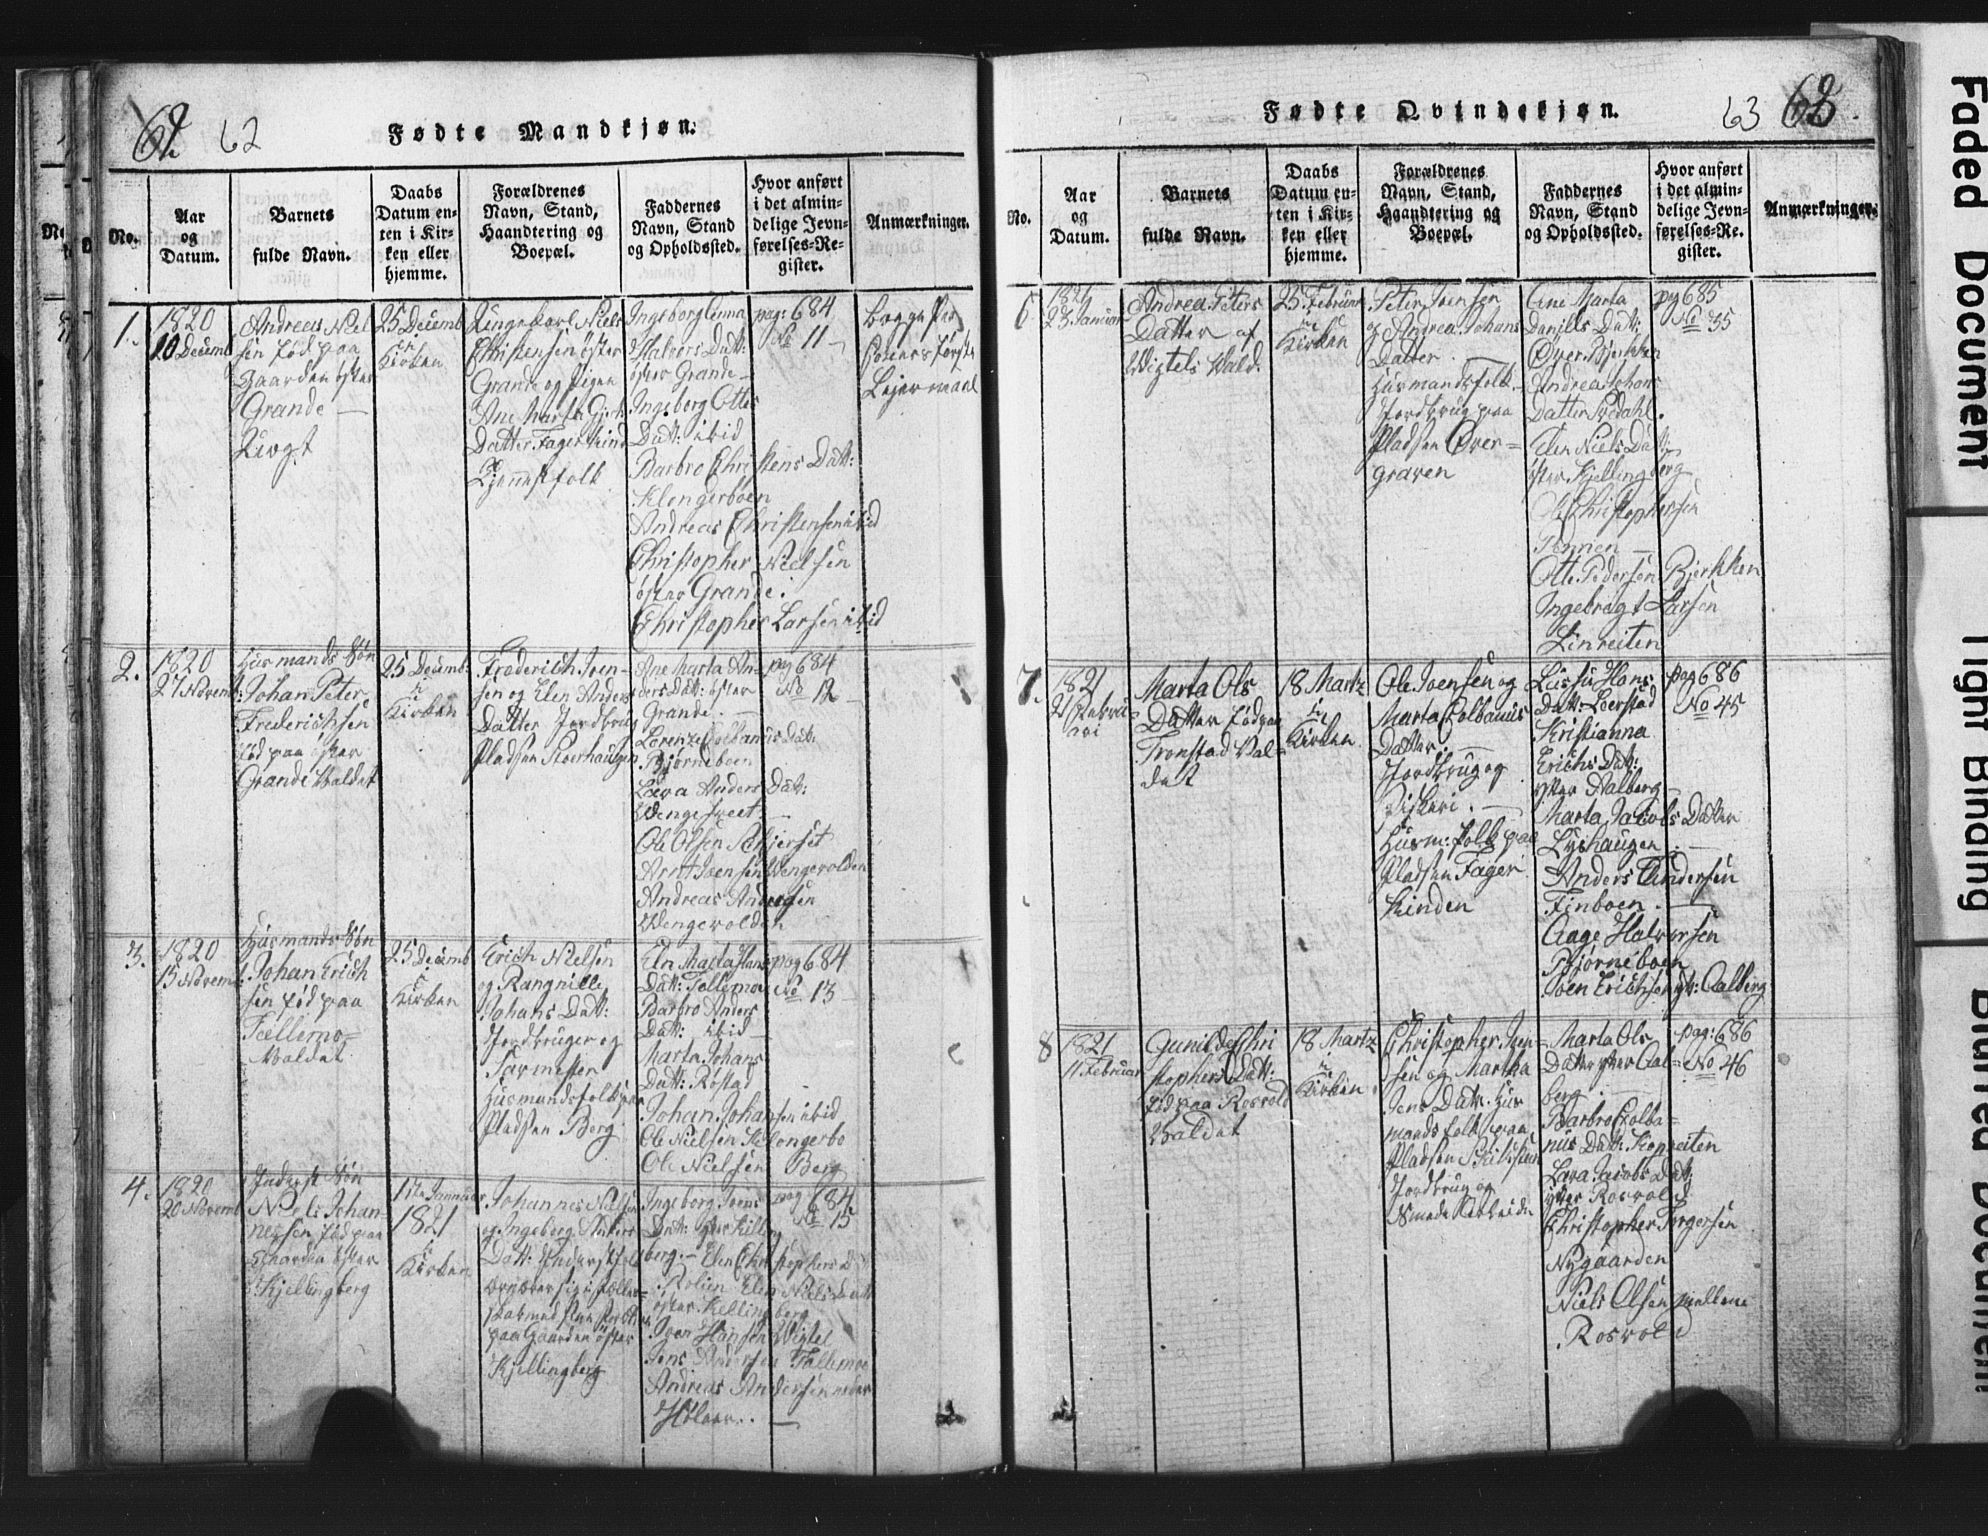 62 62
Fødte Mandkjøn.
No.
Aar
og
Datum.
Barnets
fulde Navn.
Daabs
Datum en-
ten i Kir-
ken eller
hjemme.
Forældrenes
Navn, Stand,
Haandtering og
Boepæl.
Faddernes
Navn, Stand
og Opholdssted.
Hvor anført
i det almin-
delige Jevn-
førelses-Re-
gister.
Anmærkninger.
1.
1820
20 Decemb
Andreas Niel
sen fød paa
Gaarden øster
Grande
Uægt
25 Decemb
in
Kirken
Ungekarl Niels
Christensen øster
Grande og Pigen
Ane Marta
Datter Fagerkind
Tjennestfolk
Ingeborg Anna
Halvors Datt:
øster Grande
Ingeborg Ottes
Datt: ibid
Barbro Christens Datt:
Klengerboen
Andreas Christensen ibid
Christopher Nielsen
øster Grande.
Christopher Larsen ibid
pag: 684
No 11
begge Per
soners første
Lejermaal
2.
1820
27 Novemb:
Husmands Søn
Johan Peter
Frederichsen
fød paa øster
Grande Valdet
25 Decemb:
in
Kirken
Frederich Iven-
sen og Elen Anders
Datter Jordbrug
Pladsen Storhaugen
Ane Marta An-
ders Datt: øster
Grande
Lorenze Colbanus Dat:
Bjørneboen
Lava Anders Dat:
Wengesveet
Ole Olsen Schjerset
Arnt Joensen Wengevolden
Andreas Andersen
Wengevolden
pag 684
No 12
3.
1820
15 Novemb
Husmands Søn
Johan Erich
sen fød paa
Fællemo-
Valdet
25 Decemb
i
Kirken
Erich Nielsen
og Rangnille
Johans Datt:
Jordbruger og
Husmandsfolk paa
Pladsen Berg
Eln Marta Hans
Datt: Fellemoe
Barbro Anders
Datt: ibid
Marta Johans
Datt: Røstad
Johan Johansen ibid
Ole Nielsen Klongerbo
Ole Nielsen Berg
pag 684
No 13
4.
1820
20 Novemb
Inderst Søn
Niels Johan-
nessen fød paa
Gaarden øster
Kjellingberg
1ste Januar
1821
i
Kirken
Johannes Nielsen
og Ingeborg Anders
Datt: Inderstfolk
paa Gaarden øster
Kjellingberg
Ingeborg Ivers
Datt: øster Killing
berg.- Elen Christophers D
Elen Niels Datt
øster Kellingberg
Iver Hansen Wigtel
Jens Andersen Fallemoe
Andreas Andersen neder
Hølaan.
pag 684
No 15

Fødte Qvindekjøn.
63 62
No.
Aar
og
Datum.
Barnets
fulde Navn.
Daabs
Datum en-
ten i Kir-
ken eller
hjemme.
Forældrenes
Navn, Stand,
Haandtering og
Boepæl.
Faddernes
Navn, Stand
og Opholdssted.
Hvor anført
i det almin-
delige Jevn-
førelses-Re-
gister.
Anmærkninger.
6
1821
23 Januar
Andrea Peters
Datter af
Wigtels Vald.
25 Februar
in
Kirken
Peter Ivensen
og Andrea Johans
Datter
Husmandsfolk
Jordbrug paa
Pladsen Øver-
graven
Ane Marta
Daniels Datt:
Øver Bjerkken
Andrea Johans
Datter Svedahl.
Elen Niels Dat:
øster Kjellingberg
Ole Christophersen
Otte Pedersen Bjerkken
Ingebregt Larsen
Linreiten
pag 685
No 35
7.
1821
21 Februa
ari
Marta Ols
Datter fød paa
Tronstad Val-
det
18 Martz
in
Kirken
Ole Ivensen og
Marta Colbanus
Datter.
Jordbrug og
Fiskeri.
Husm: folk paa
Pladsen Fager
kinden
Hans
Datt: Leerstad
Kristianna
Erichs Dat:
yster Aalberg
Marta Jacobs Datter
Lyshaugen
Anders Andersen
Finboen
Aage Halvorsen
Bjørneboen
Joen Erichsen yt: Aalberg
pag 686
No 45
8
1821
11 Februar
Gunild Chri
stophers Datt:
fød paa Rosvold
Valdet
18 Martz
in
Kirken
Christopher Iven-
sen og Martha
Jens Datt: Hus
mands folk paa
Pladsen
Jordbrug og
Smede Arbeide
Marta Ols
Datter yter Aal-
berg
Barbro Colba-
nus Datt: Kopreiten
Lava Jacobs Datt:
yter Rosvold
Christopher Torgersen
Nygaarden
Niels Olsen mellem
Rosvold
pag: 686
No 46

Faded Document
Tight Binding
Blurred Document